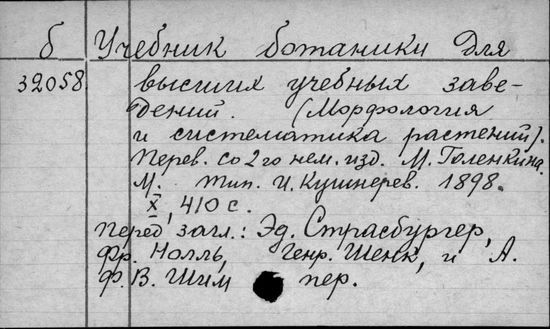 б Учебник ботаники для
32058. высших учебных заве-
дений. (Морфология
и систематика растений).
Перев. со 2го нем. изд. М. Голенкина.
М. тип. И. Кушнерев. 1898.
X, 410 с.
Перед загл.: Эд. Страсбургер,
Фр. Нолль, Генр. Шенк, и А.
Ф. В. Шим пер.